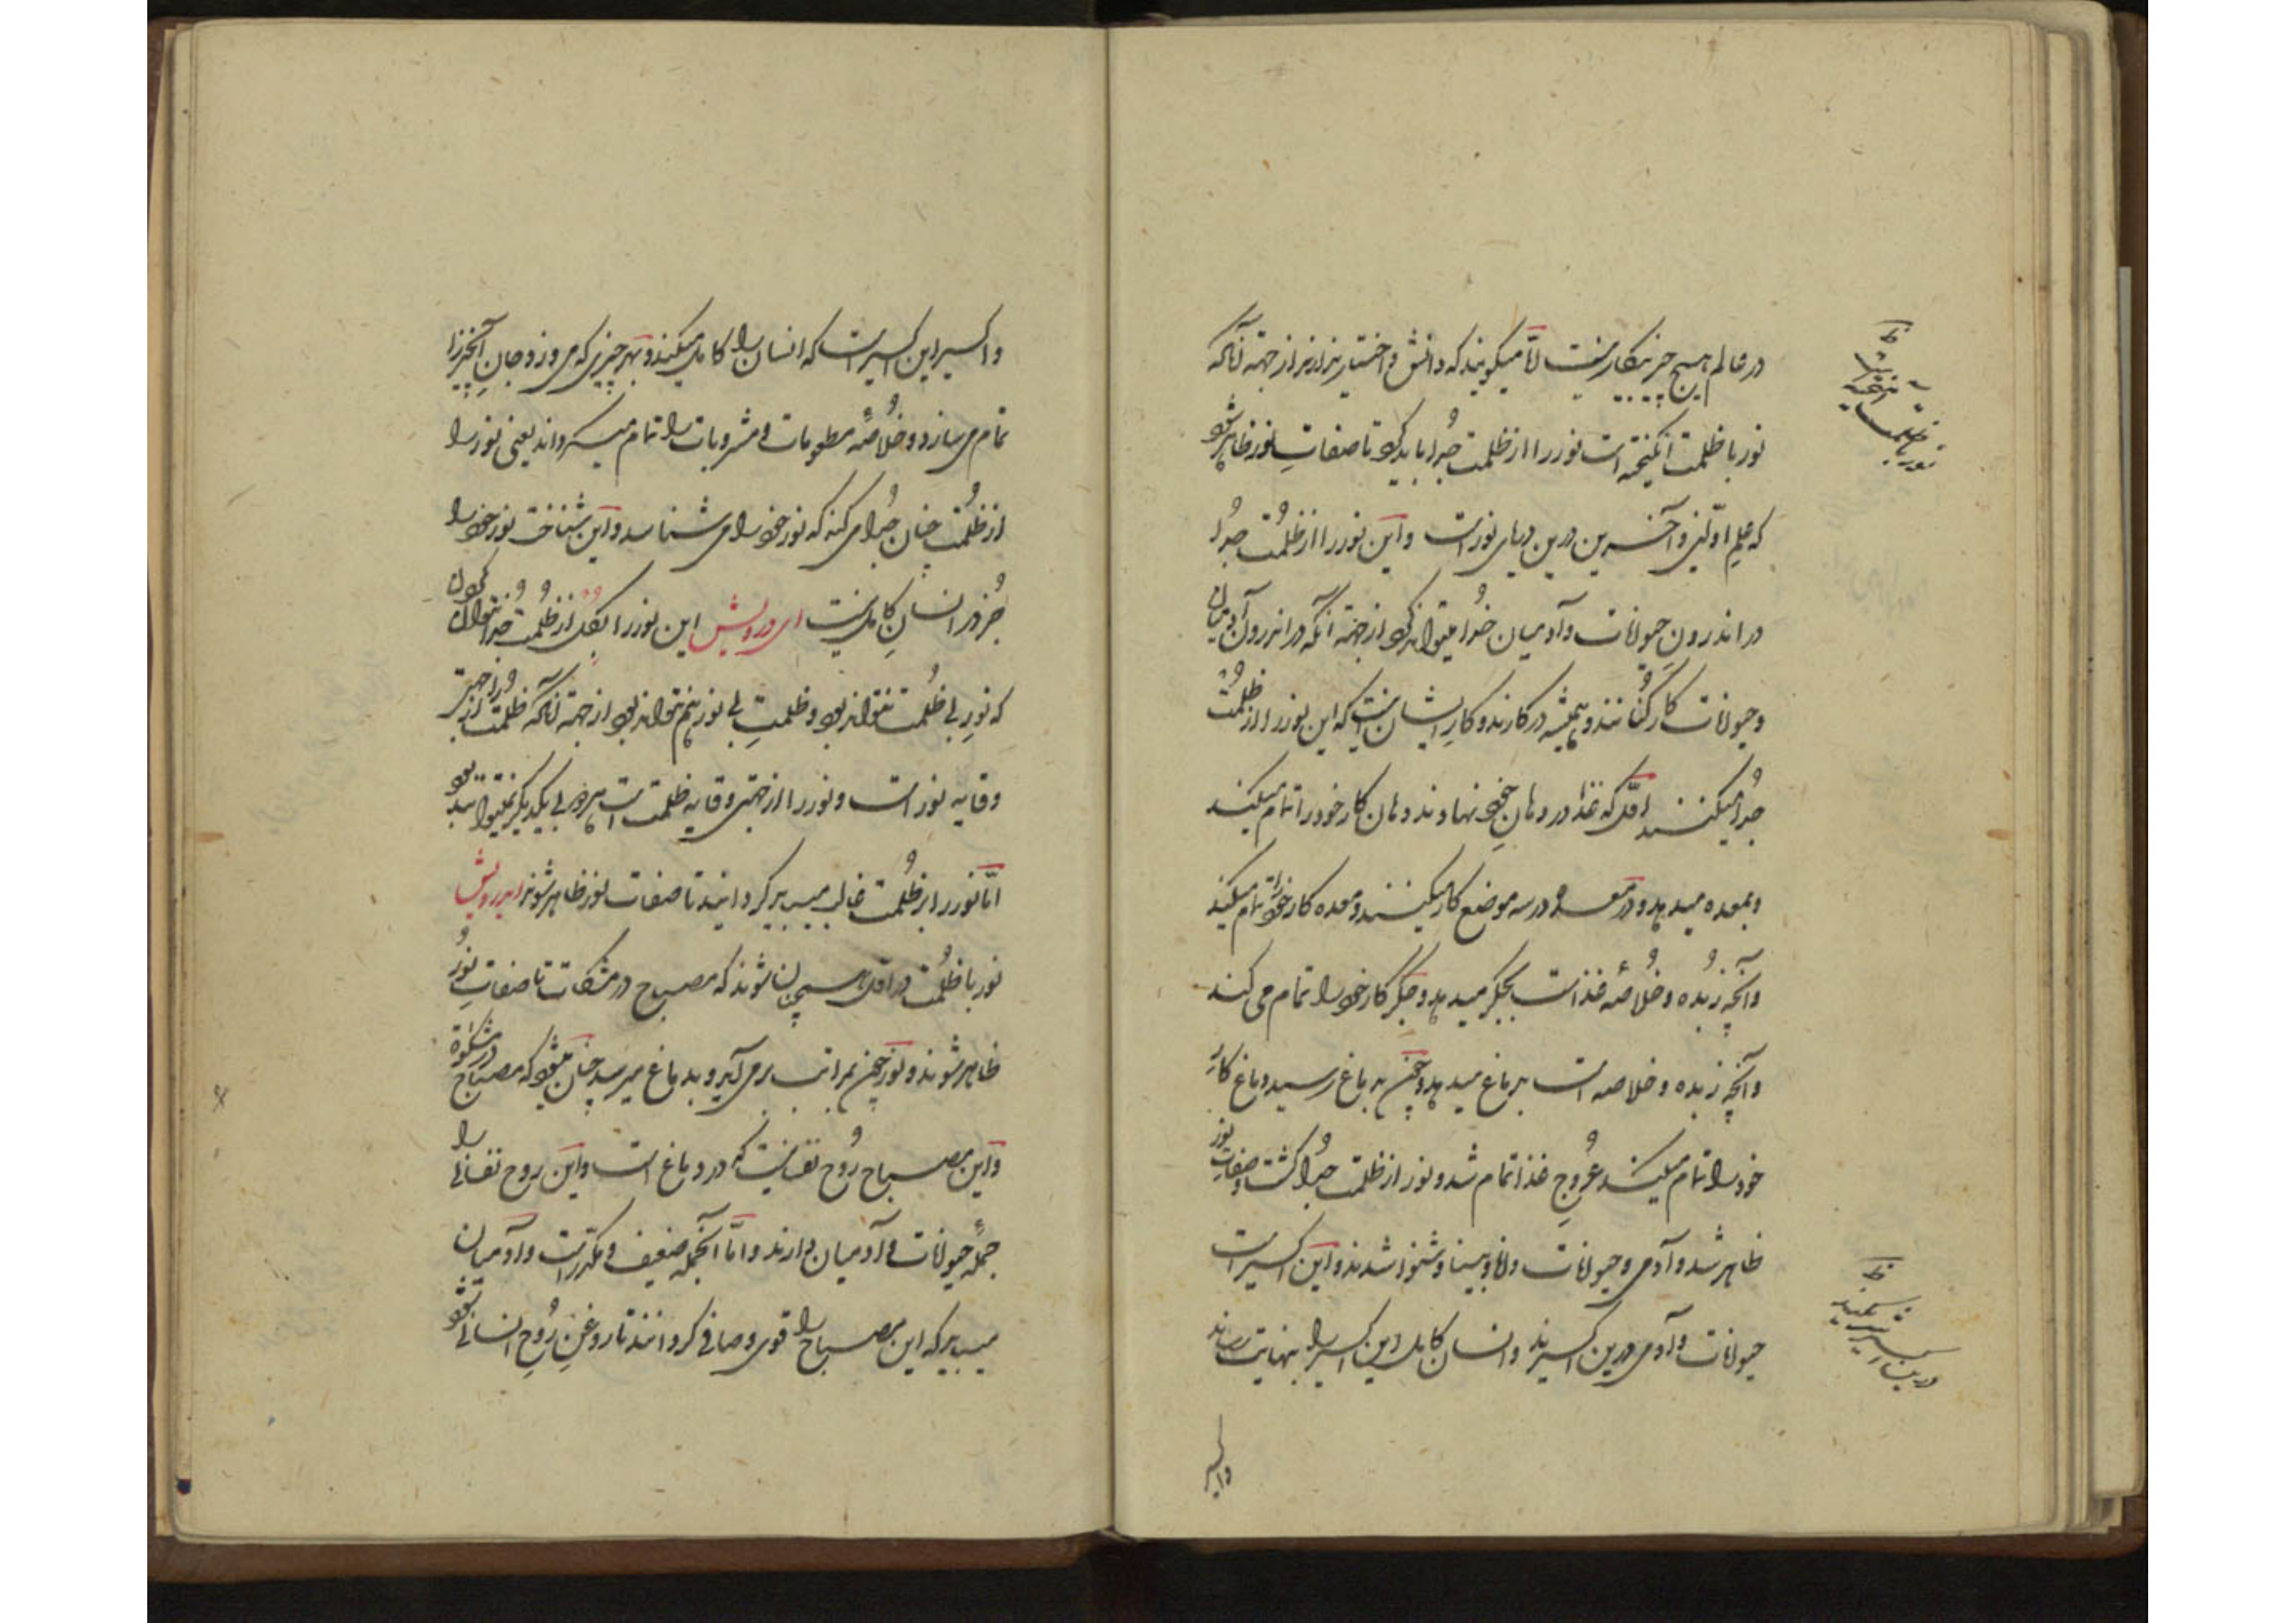 در عالم هیچ چیز بیکار نیست اما میگویند که دانش و اختیار ندارند از جهت آنکه
این
نور با ظلمت آمیخته است نور را از ظلمت جدا باید کرد تا صفات نور ظاهر شود
که علم اولین و آخرین درین دریای نور است و این نور را از ظلمت جدا
در اندرون حیوانات و آدمیان جدا میتواند کرد از جهت آنکه در اندرون آدمیان
و حیوانات کارکنانند و همیشه در کارند و کار ایشان اینست که این نور را از ظلمت
جدا میکنند اول که غذا در دهان خود نهادند دهان کار خود را تمام میکند
و بمعده میدهد و در معده در سه موضع کار میکنند و معده کار خود را تمام میکند
و آنچه زبده و خلاصه غذا است بجگر میدهد و جگر کار خود را تمام می کند
و آنچه زبده و خلاصه است بدماغ میدهد و چون به دماغ رسید و دماغ کار
خود را تمام میکند عروج غذا تمام شد و نور از ظلمت جدا گشت و صفات نور
ظاهر شد و آدمی و حیوانات دانا و بینا و شنوا شدند و این اکسیر است
حیوانات و آدمی درین اکسیرند و انسان کامل این اکسیر را بنهایت رساند
واکسیر
ظ
نور با ظلمت آمیخته است
ظ
درین اکسیر میکنند
و اکسیر این اکسیر است که انسان را کامل میکند و بهر چیزی که می‌خورد جان آنچیز را
تمام می سازد و خلاصه مطعومات و مشروبات را تمام میگرداند یعنی نور را
از ظلمت چنان جدا می کند که نور خود را می شناسد و این شناخت نور خود را
جز در انسان کامل نیست ای درویش این نور را بکل از ظلمت جدا نتوان کردن
که نور بی ظلمت نتواند بود و ظلمت بی نور هم نتواند بود از جهت آنکه ظلمت از جهتی
وقایه نور است و نور را از جهتی وقایه ظلمت است هر دو بی یکدیگر نمیتوانند بود
اما نور را بر ظلمت غالب میباید گردانید تا صفات نور ظاهر شوند ای درویش
نور با ظلمت در اول همچنان شوند که مصباح در مشکات تا صفات نور
ظاهر شوند و نور چون بمراتب بر می آید و بدماغ میرسد چنان میشود که مصباح در مشکوة
و این مصباح روح نفسانیست که در دماغ است و این روح نفسانی را
جمله حیوانات و آدمیان دارند و اما آنجمله ضعیف و مکدر است و آدمیان
میباید که این مصباح را قوی و صافی گردانند تا روغن روح انسانی شود